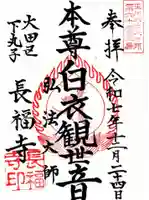 奉拝
令和七年十二月二十四日
本尊白衣観世音
弘法大師
大田区
下丸子
長福寺